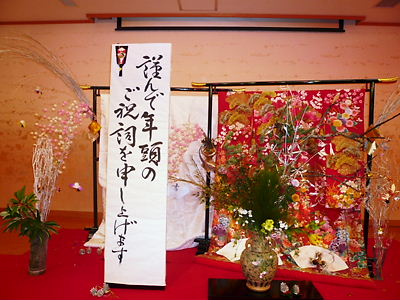 謹んで年頭の
ご祝詞を申し上げます